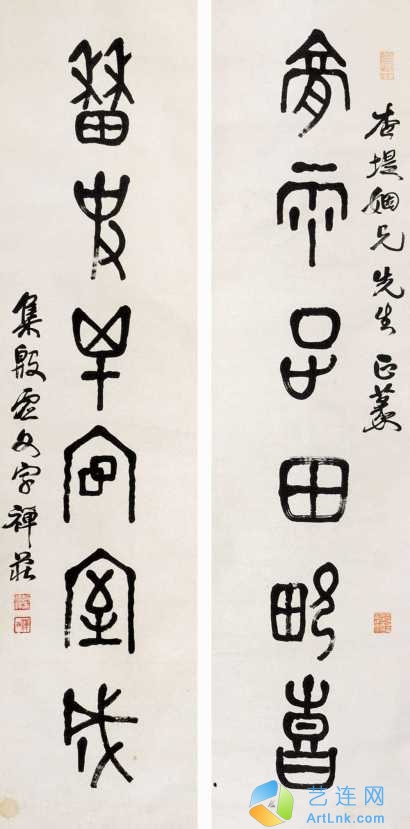 杏堤姻兄先生正篆
膏雨足田畯喜
嗇事畢宮室成
集殷虚文字禅莊
艺连网
ArtLnk.com